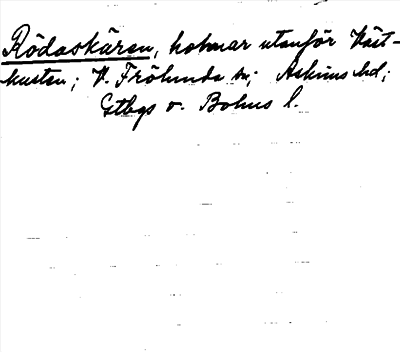 Rödaskären, holmar utanför Väst-
kusten; V. Frölunda sn; Askims hd;
Gtbgs o. Bohus l.